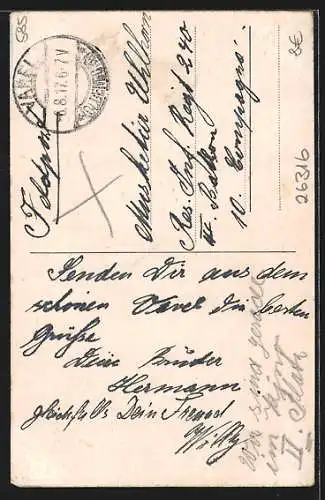 585
8€
6.8.17.6-7V
Feldpost
Musketier Uhlhorn
Res. Inf. Regt 240
III. Batlion
10. Compagnie
26316
Senden Dir aus dem
schönen Varel die besten
Grüße
Dein Bruder
Hermann
gleichfalls Dein Freund
Willy
Wir sind gerade
im
II. Platz